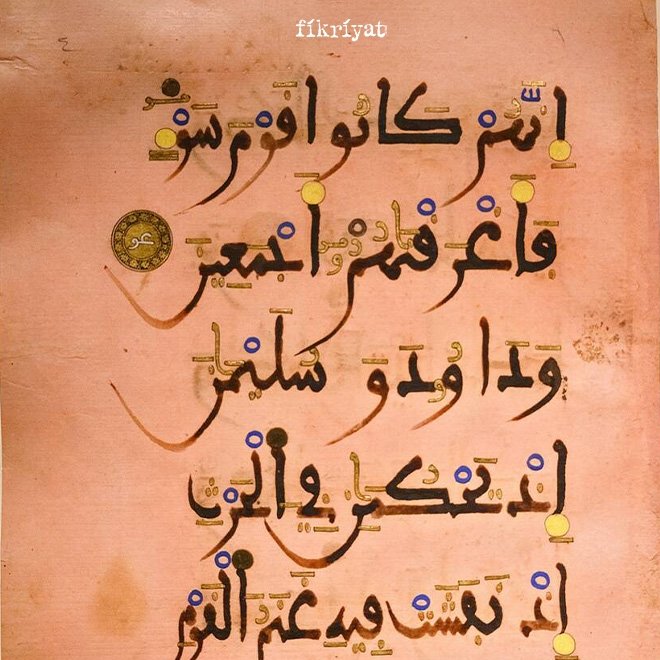 fikriyat
إِنَّهُمْ كَانُوا قَوْمَ سَوْءٍ
فَأَغْرَقْنَاهُمْ أَجْمَعِينَ
وَدَاوُودَ وَسُلَيْمَانَ
إِذْ يَحْكُمَانِ فِي الْحَرْثِ
إِذْ نَفَشَتْ فِيهِ غَنَمُ الْقَوْمِ